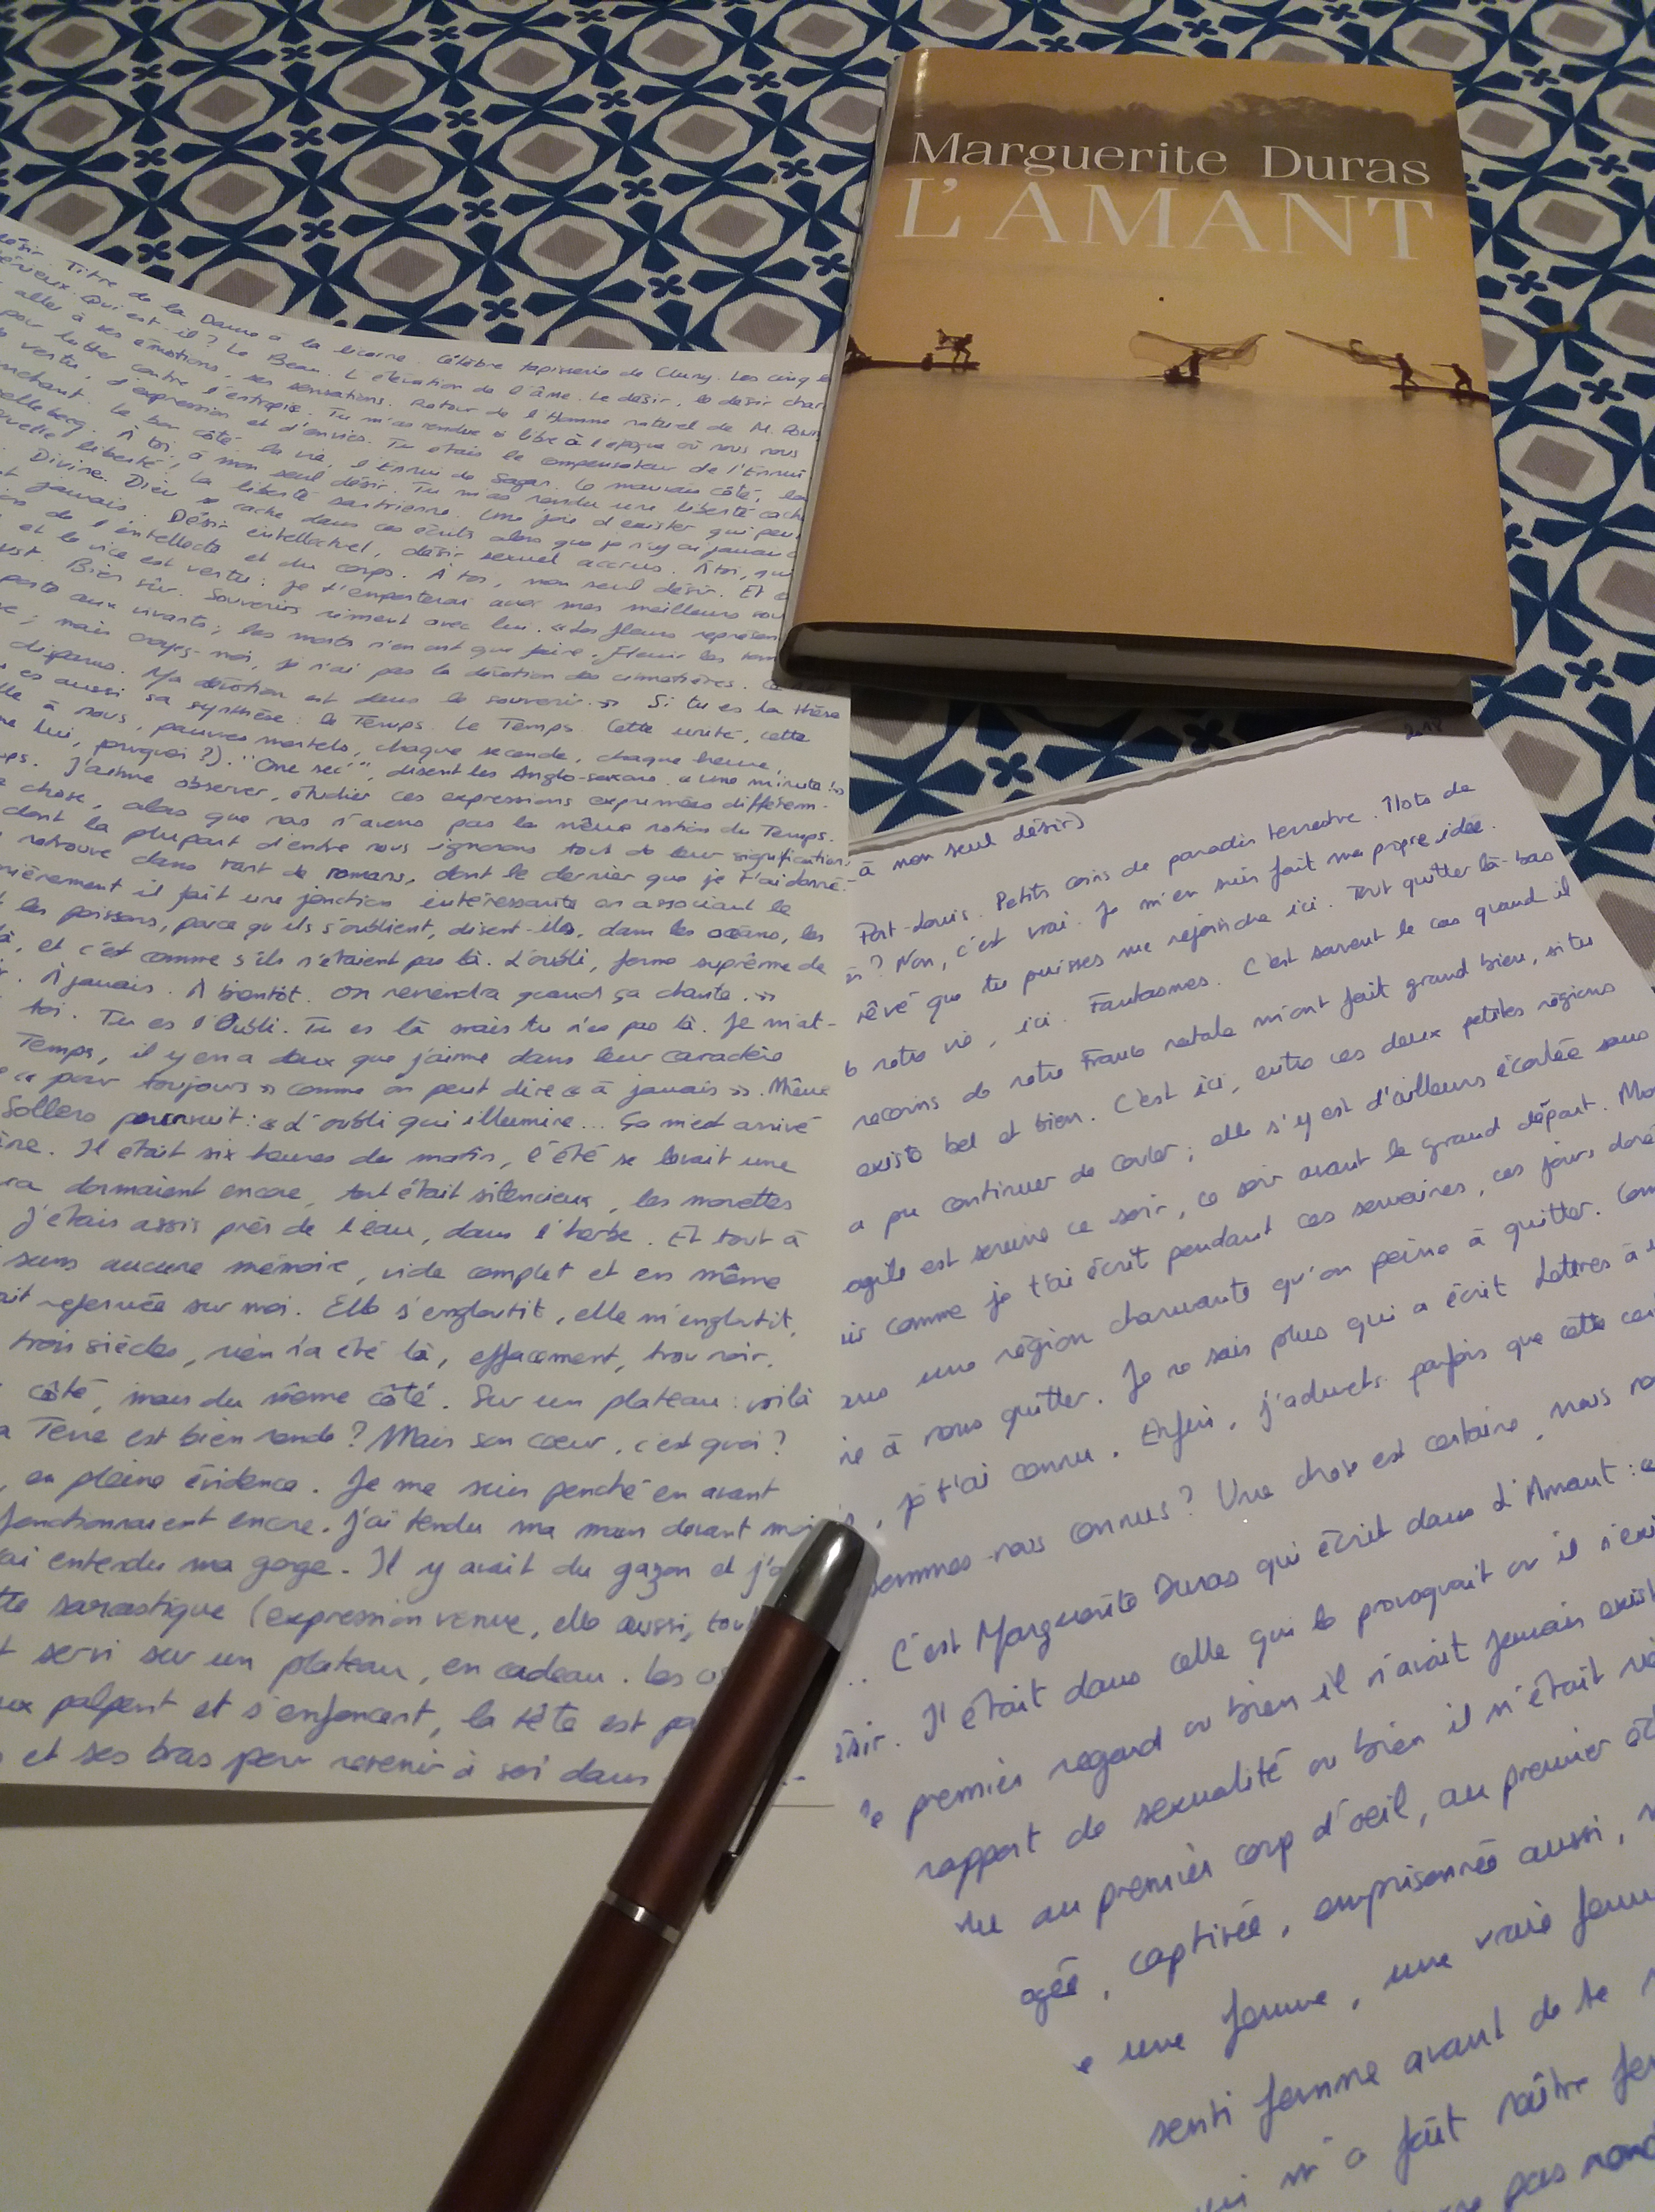 Marguerite Duras
L'AMANT
désir. Titre de la Dame à la licorne. Célèbre tapisserie de Cluny. Les cinq
Qui est-il ? Le Beau. L'élévation de l'âme. Le désir, le désir char
aller à ses émotions, ses sensations. Retour de l'Homme naturel de M.
pour lutter contre l'entropie. Tu m'as rendue libre à l'époque où nous nous
vertu, d'expression et d'envies. Tu étais le compensateur de l'Ennui
Le bon côté, la vie, l'Ennui de Sagan. Le mauvais côté, la
liberté, à mon seul désir. Tu m'as rendu une liberté cach
Divine. La liberté sartrienne. Une joie d'exister qui peu
jamais. Dieu se cache dans ces écrits alors que je n'y ai jamais
de l'intellect. Désir intellectuel, désir sexuel accrus. À toi, qui
et le vice est vertu et du corps. À toi, mon seul désir. Et
Bien sûr. Je t'emporterai avec mes meilleurs sou
porte aux vivants. Souvenirs riment avec lui. « Les fleurs représen
; les morts n'en ont que faire. Fleurir les tom
; mais croyez-moi, je n'ai pas la dévotion des cimetières.
disparus. Ma dévotion est dans le souvenir. » Si tu es la thèse
es aussi sa synthèse : le Temps. Le Temps. Cette unité, cette
à nous, pauvres mortels, chaque seconde, chaque heure,
lui, pourquoi ?). "One sec'", disent les Anglo-saxons. « Une minute ! »
ps. J'aime observer, étudier ces expressions exprimées différem-
chose, alors que nous n'avons pas la même notion du Temps.
dont la plupart d'entre nous ignorons tout de leur signification
retrouve dans tant de romans, dont le dernier que je t'ai donné.
nièrement il fait une jonction intéressante en associant le
les poissons, parce qu'ils s'oublient, disent-ils, dans les océans, les
à, et c'est comme s'ils n'étaient pas là. L'oubli, forme suprême de
. À jamais. À bientôt. On reviendra quand ça chante. »
toi. Tu es l'Oubli. Tu es là mais tu n'es pas là. Je m'at-
Temps, il y en a deux que j'aime dans leur caractère
« pour toujours » comme on peut dire « à jamais ». Même
Sollers poursuit : « L'oubli qui illumine... Ça m'est arrivé
ine. Il était six heures du matin, l'été se levait une
ra dormaient encore, tout était silencieux, les mouettes
J'étais assis près de l'eau, dans l'herbe. Et tout à
sans aucune mémoire, vide complet et en même
ait refermée sur moi. Elle s'engloutit, elle m'engloutit,
trois siècles, rien n'a été là, effacement, trou noir.
côté, mais du même côté. Sur un plateau : voilà
a Terre est bien ronde ? Mais son cœur, c'est quoi ?
, en pleine évidence. Je me suis penché en avant
fonctionnaient encore. J'ai tendu ma main devant moi
ai entendu ma gorge. Il y avait du gazon et j'a
te sarcastique (expression venue, elle aussi, tou
t servi sur un plateau, en cadeau. Les
ux palpent et s'enfoncent, la tête est pa
et ses bras pour revenir à soi dans
2018
à mon seul désir)
Port-Louis. Petits coins de paradis terrestre. Îlots de
? Non, c'est vrai. Je m'en suis fait ma propre idée.
rêvé que tu puisses me rejoindre ici. Tout quitter là-bas
notre vie, ici. Fantasmes. C'est souvent le cas quand il
recoins de notre France natale m'ont fait grand bien, si tu
existe bel et bien. C'est ici, entre ces deux petites régions
a pu continuer de couler ; elle s'y est d'ailleurs écoulée sans
agile est sereine ce soir, ce soir avant le grand départ. Mo
comme je t'ai écrit pendant ces semaines, ces jours doré
ans une région charmante qu'on peine à quitter. Com
à nous quitter. Je ne sais plus qui a écrit Lettres à
, je t'ai connu. Enfin, j'admets parfois que cette
sommes-nous connus ? Une chose est certaine, nous
... C'est Marguerite Duras qui écrit dans L'Amant : «
ésir. Il était dans celle qui le provoquait ou il n'exi
le premier regard ou bien il n'avait jamais exist
rapport de sexualité ou bien il n'était
au premier coup d'œil, au premier
agée, captivée, emprisonnée aussi,
une femme, une vraie femm
senti femme avant de te
m'a fait naître fem
pas